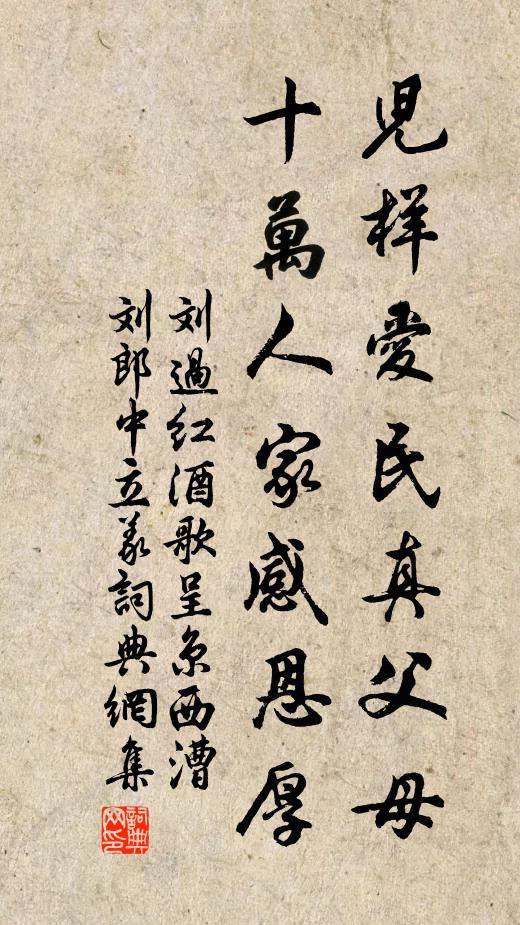 児样愛民真父母
十萬人家感恩厚
刘過红酒歌呈京西漕
刘郎中立義詞典網集
詞典
网印